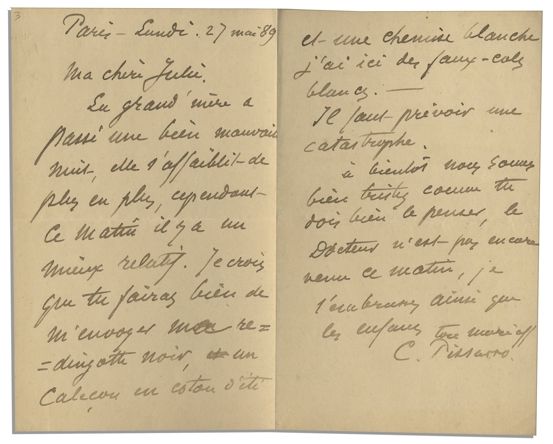 3
Paris - Lundi. 27 mai 89
Ma chère Julie.
La grand'mère a
passé une bien mauvaise
nuit, elle s'affaiblit de
plus en plus, cependant
ce matin il y a un
mieux relatif. Je crois
que tu feras bien de
m'envoyer ma re=
=dingotte noir, un
caleçon en coton d'été
et une chemise blanche
j'ai ici des faux-cols
blancs. —
Il faut prévoir une
catastrophe.
à bientôt nous sommes
bien tristes comme tu
dois bien le penser, le
Docteur n'est pas encore
venu ce matin, je
t'embrasse ainsi que
les enfants ton mari aff
C. Pissarro.